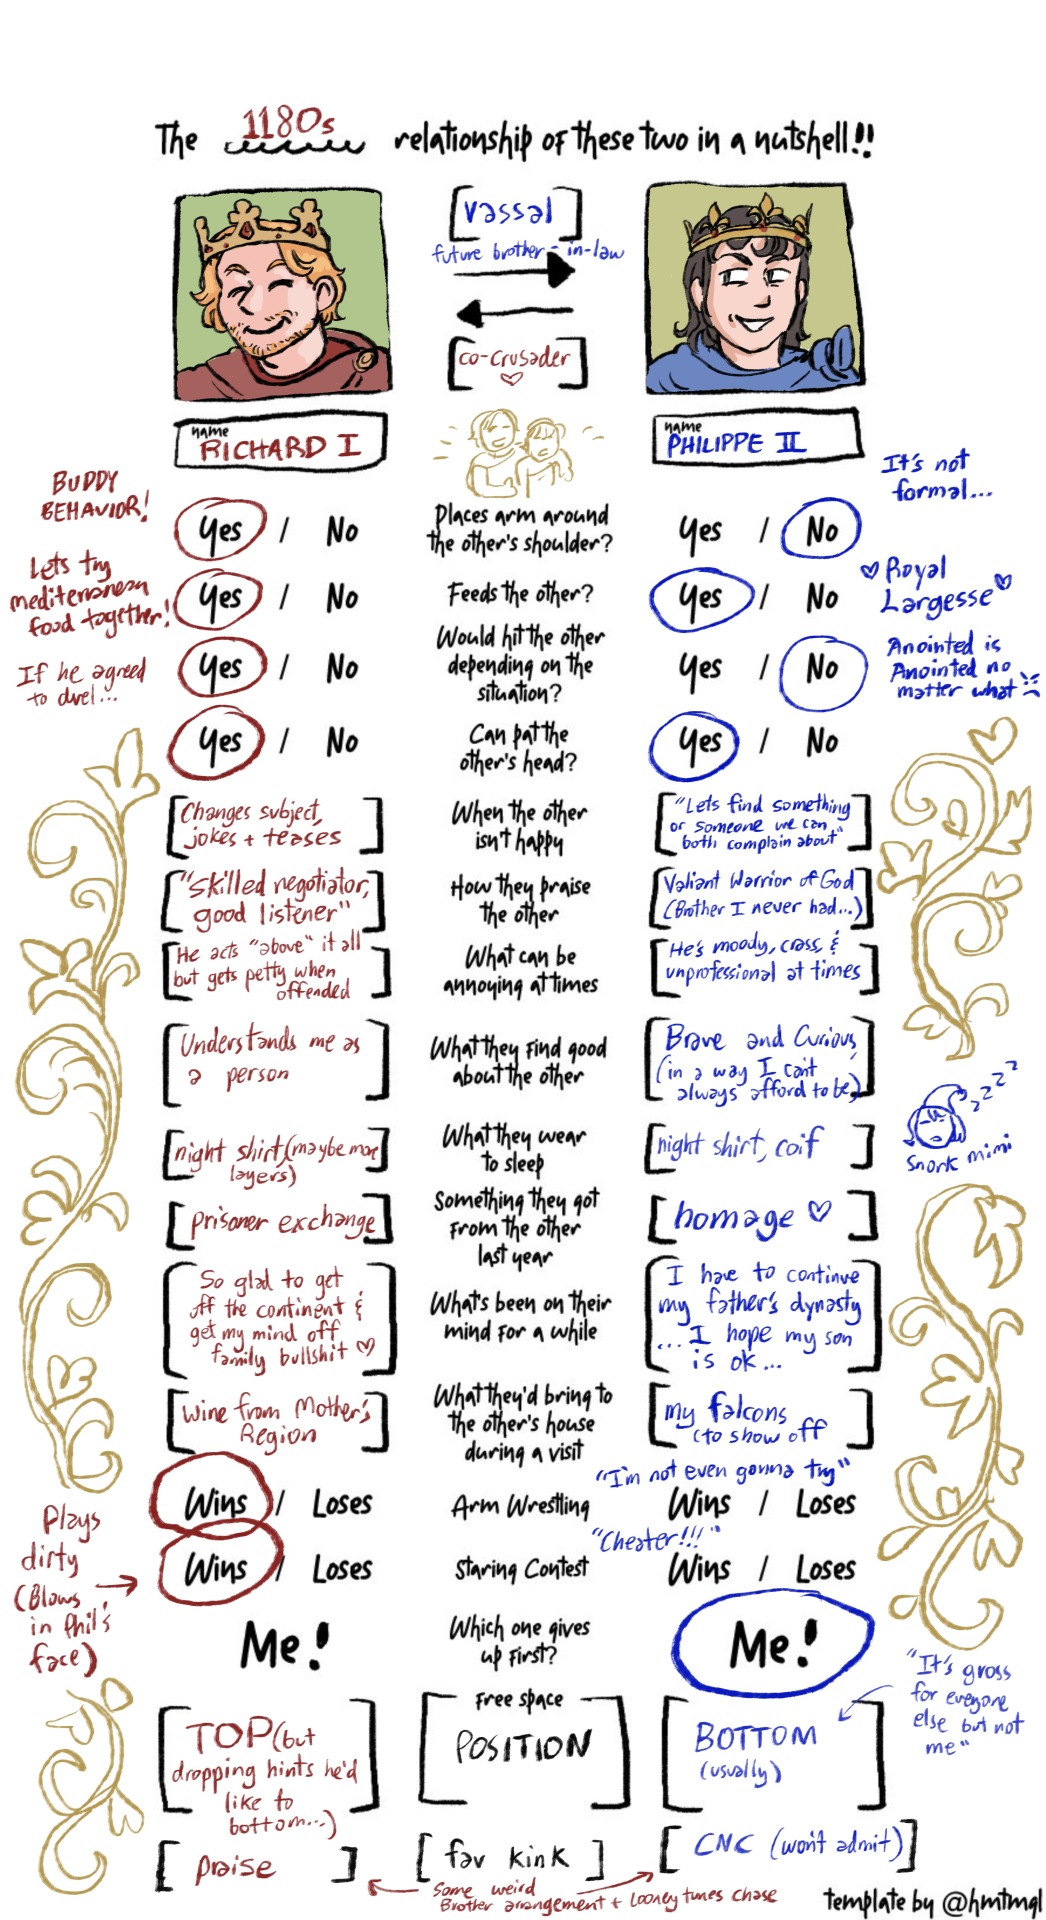 The 1180s relationship of these two in a nutshell!!
[vassal]
future brother-in-law
[co-crusader
♡]
name
RICHARD I
name
PHILIPPE II
BUDDY
BEHAVIOR!
Yes / No
Places arm around
the other's shoulder?
Yes / No
It's not
formal...
Lets try
mediterranean
food together!
Yes / No
Feeds the other?
Yes / No
♡ Royal
Largesse ♡
If he agreed
to duel...
Yes / No
Would hit the other
depending on the
situation?
Yes / No
Anointed is
Anointed no
matter what
Yes / No
Can pat the
other's head?
Yes / No
[Changes subject,
jokes + teases]
When the other
isn't happy
["Lets find something
or someone we can
both complain about"]
["skilled negotiator,
good listener"]
How they praise
the other
[Valiant Warrior of God
(Brother I never had...)]
[He acts "above" it all
but gets petty when
offended]
What can be
annoying at times
[He's moody, crass, &
unprofessional at times]
[Understands me as
a person]
What they find good
about the other
[Brave and Curious
(in a way I can't
always afford to be)]
[night shirt (maybe more
layers)]
What they wear
to sleep
[night shirt, coif]
zzzz
snork mimi
[prisoner exchange]
Something they got
from the other
last year
[homage ♡]
[So glad to get
off the continent &
get my mind off
family bullshit ♡]
What's been on their
mind for a while
[I have to continue
my father's dynasty
...I hope my son
is ok...]
[Wine from Mother's
Region]
What they'd bring to
the other's house
during a visit
[my falcons
(to show off]
"I'm not even gonna try"
Wins / Loses
Arm Wrestling
Wins / Loses
"Cheater!!!"
Plays
dirty
(Blows
in Phil's
face)
Wins / Loses
Staring Contest
Wins / Loses
Me!
Which one gives
up first?
Me!
[TOP (but
dropping hints he'd
like to
bottom...)]
Free space
[POSITION]
[BOTTOM
(usually)]
"It's gross
for everyone
else but not
me"
[praise]
[fav kink]
[CNC (won't admit)]
Some weird
Brother arrangement + Looney tunes chase
template by @hmtmgl